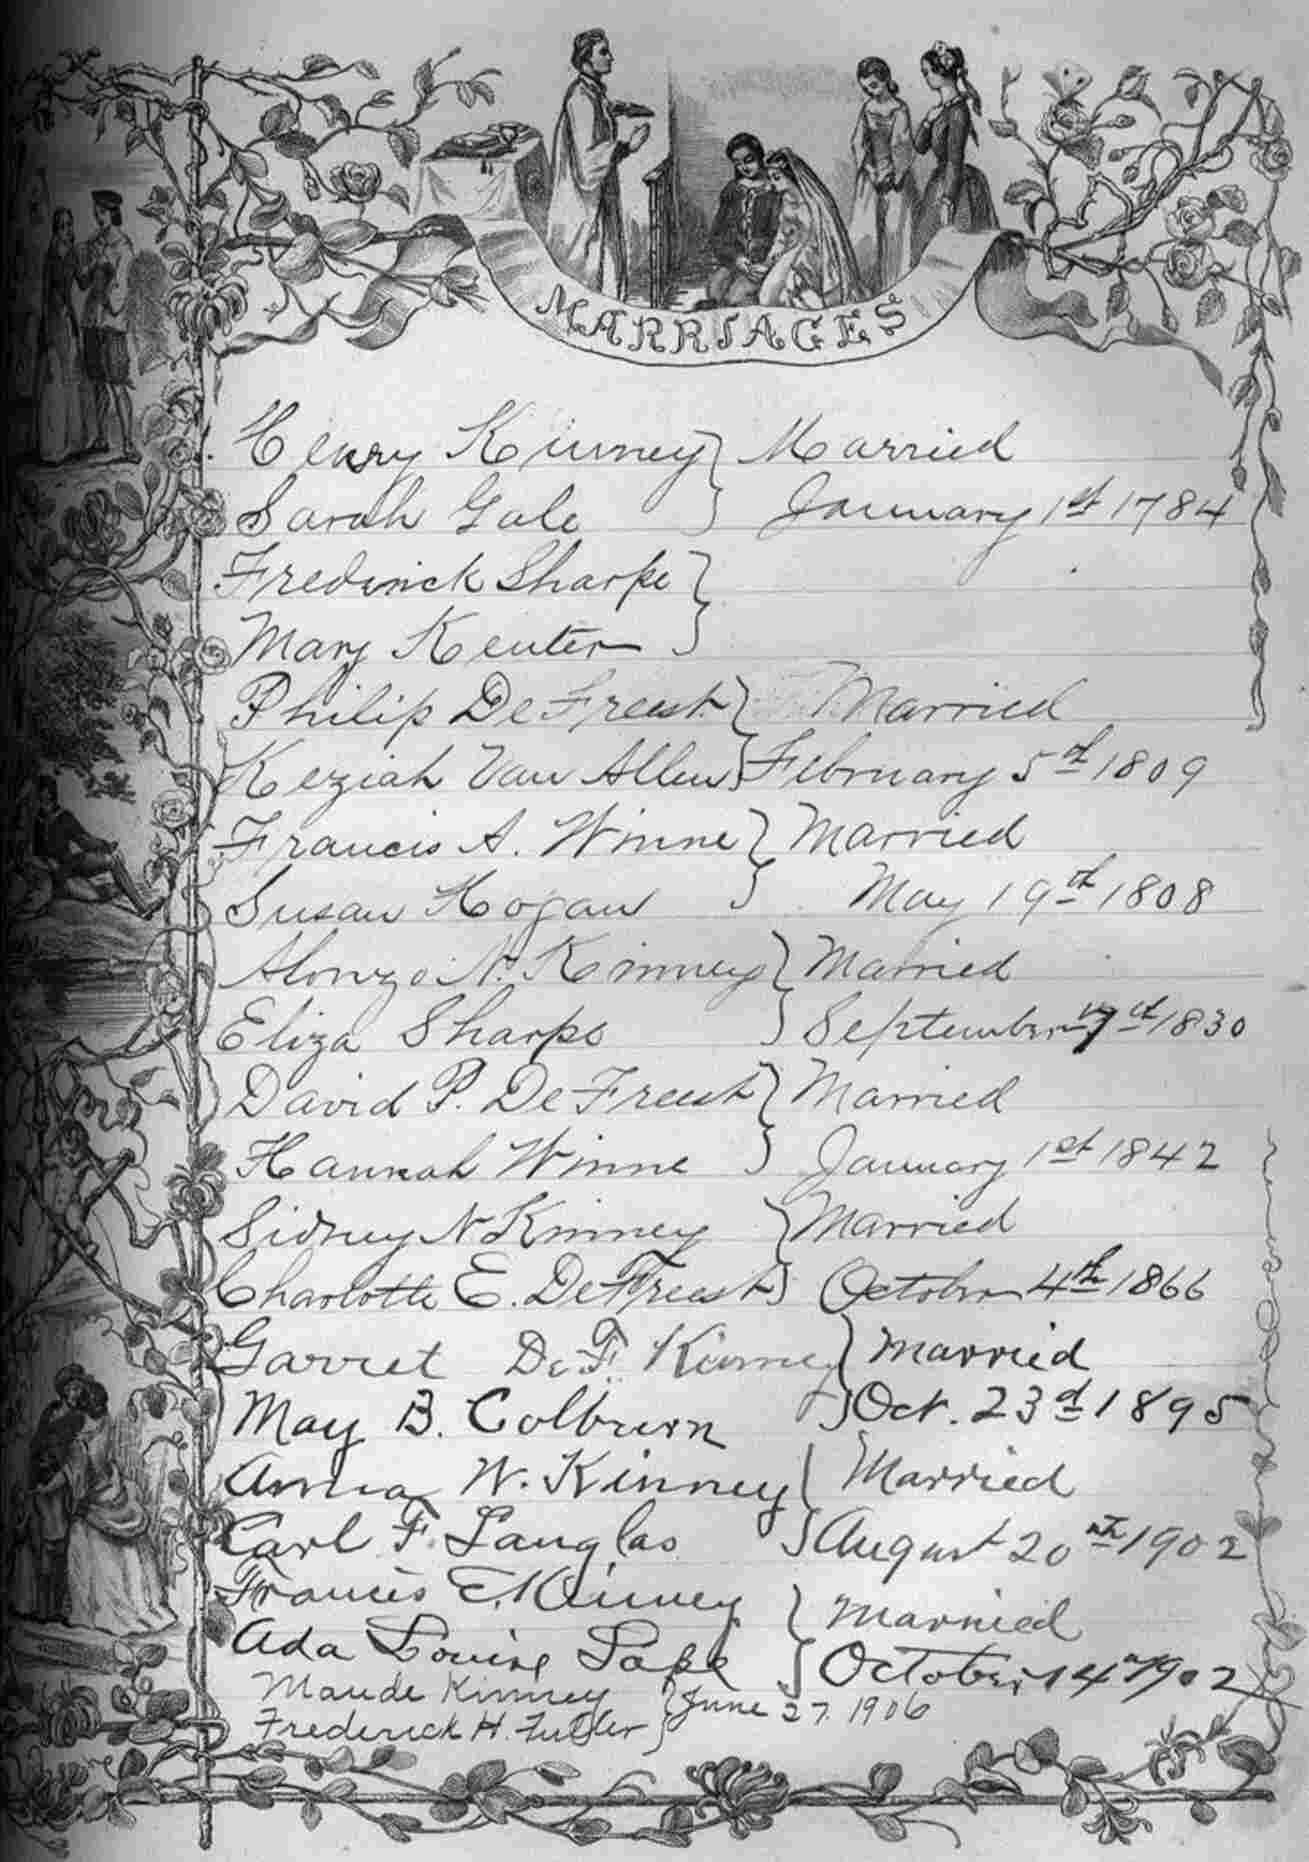 MARRIAGES
Henry Kinney } Married
Sarah Gale } January 1st 1784
Frederick Sharpe }
Mary Keuter }
Philip DeFreest } Married
Keziah Van Allen } February 5th 1809
Francis A. Winne } Married
Susan Hogan } May 19th 1808
Alonzo N. Kinney } Married
Eliza Sharpe } September 1830
David P. DeFreest } Married
Hannah Winne } January 1st 1842
Sidney N Kinney } Married
Charlotte E. DeFreest } October 4th 1866
Garret De F. Kinney } Married
May B. Colburn } Oct. 23d 1895
Anna W. Kinney } Married
Carl F. Langlas } August 20th 1902
Francis E. Kinney } Married
Ada Louise Lape } October 14th 1902
Maude Kinney } June 27. 1906
Frederick H. Fuller }